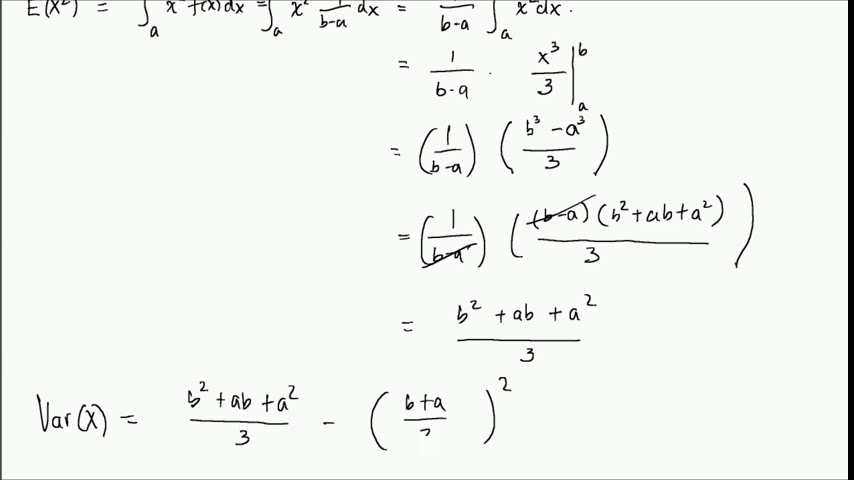 E(X²) = ∫ₐ x² f(x)dx = ∫ₐ x² 1/(b-a) dx = 1/(b-a) ∫ₐ x² dx.
= 1/(b-a) · x³/3 |ₐᵇ
= (1/(b-a)) ((b³-a³)/3)
= (1/(b-a)) ((b-a)(b²+ab+a²)/3)
= (b²+ab+a²)/3
Var(X) = (b²+ab+a²)/3 - ((b+a)/2)²